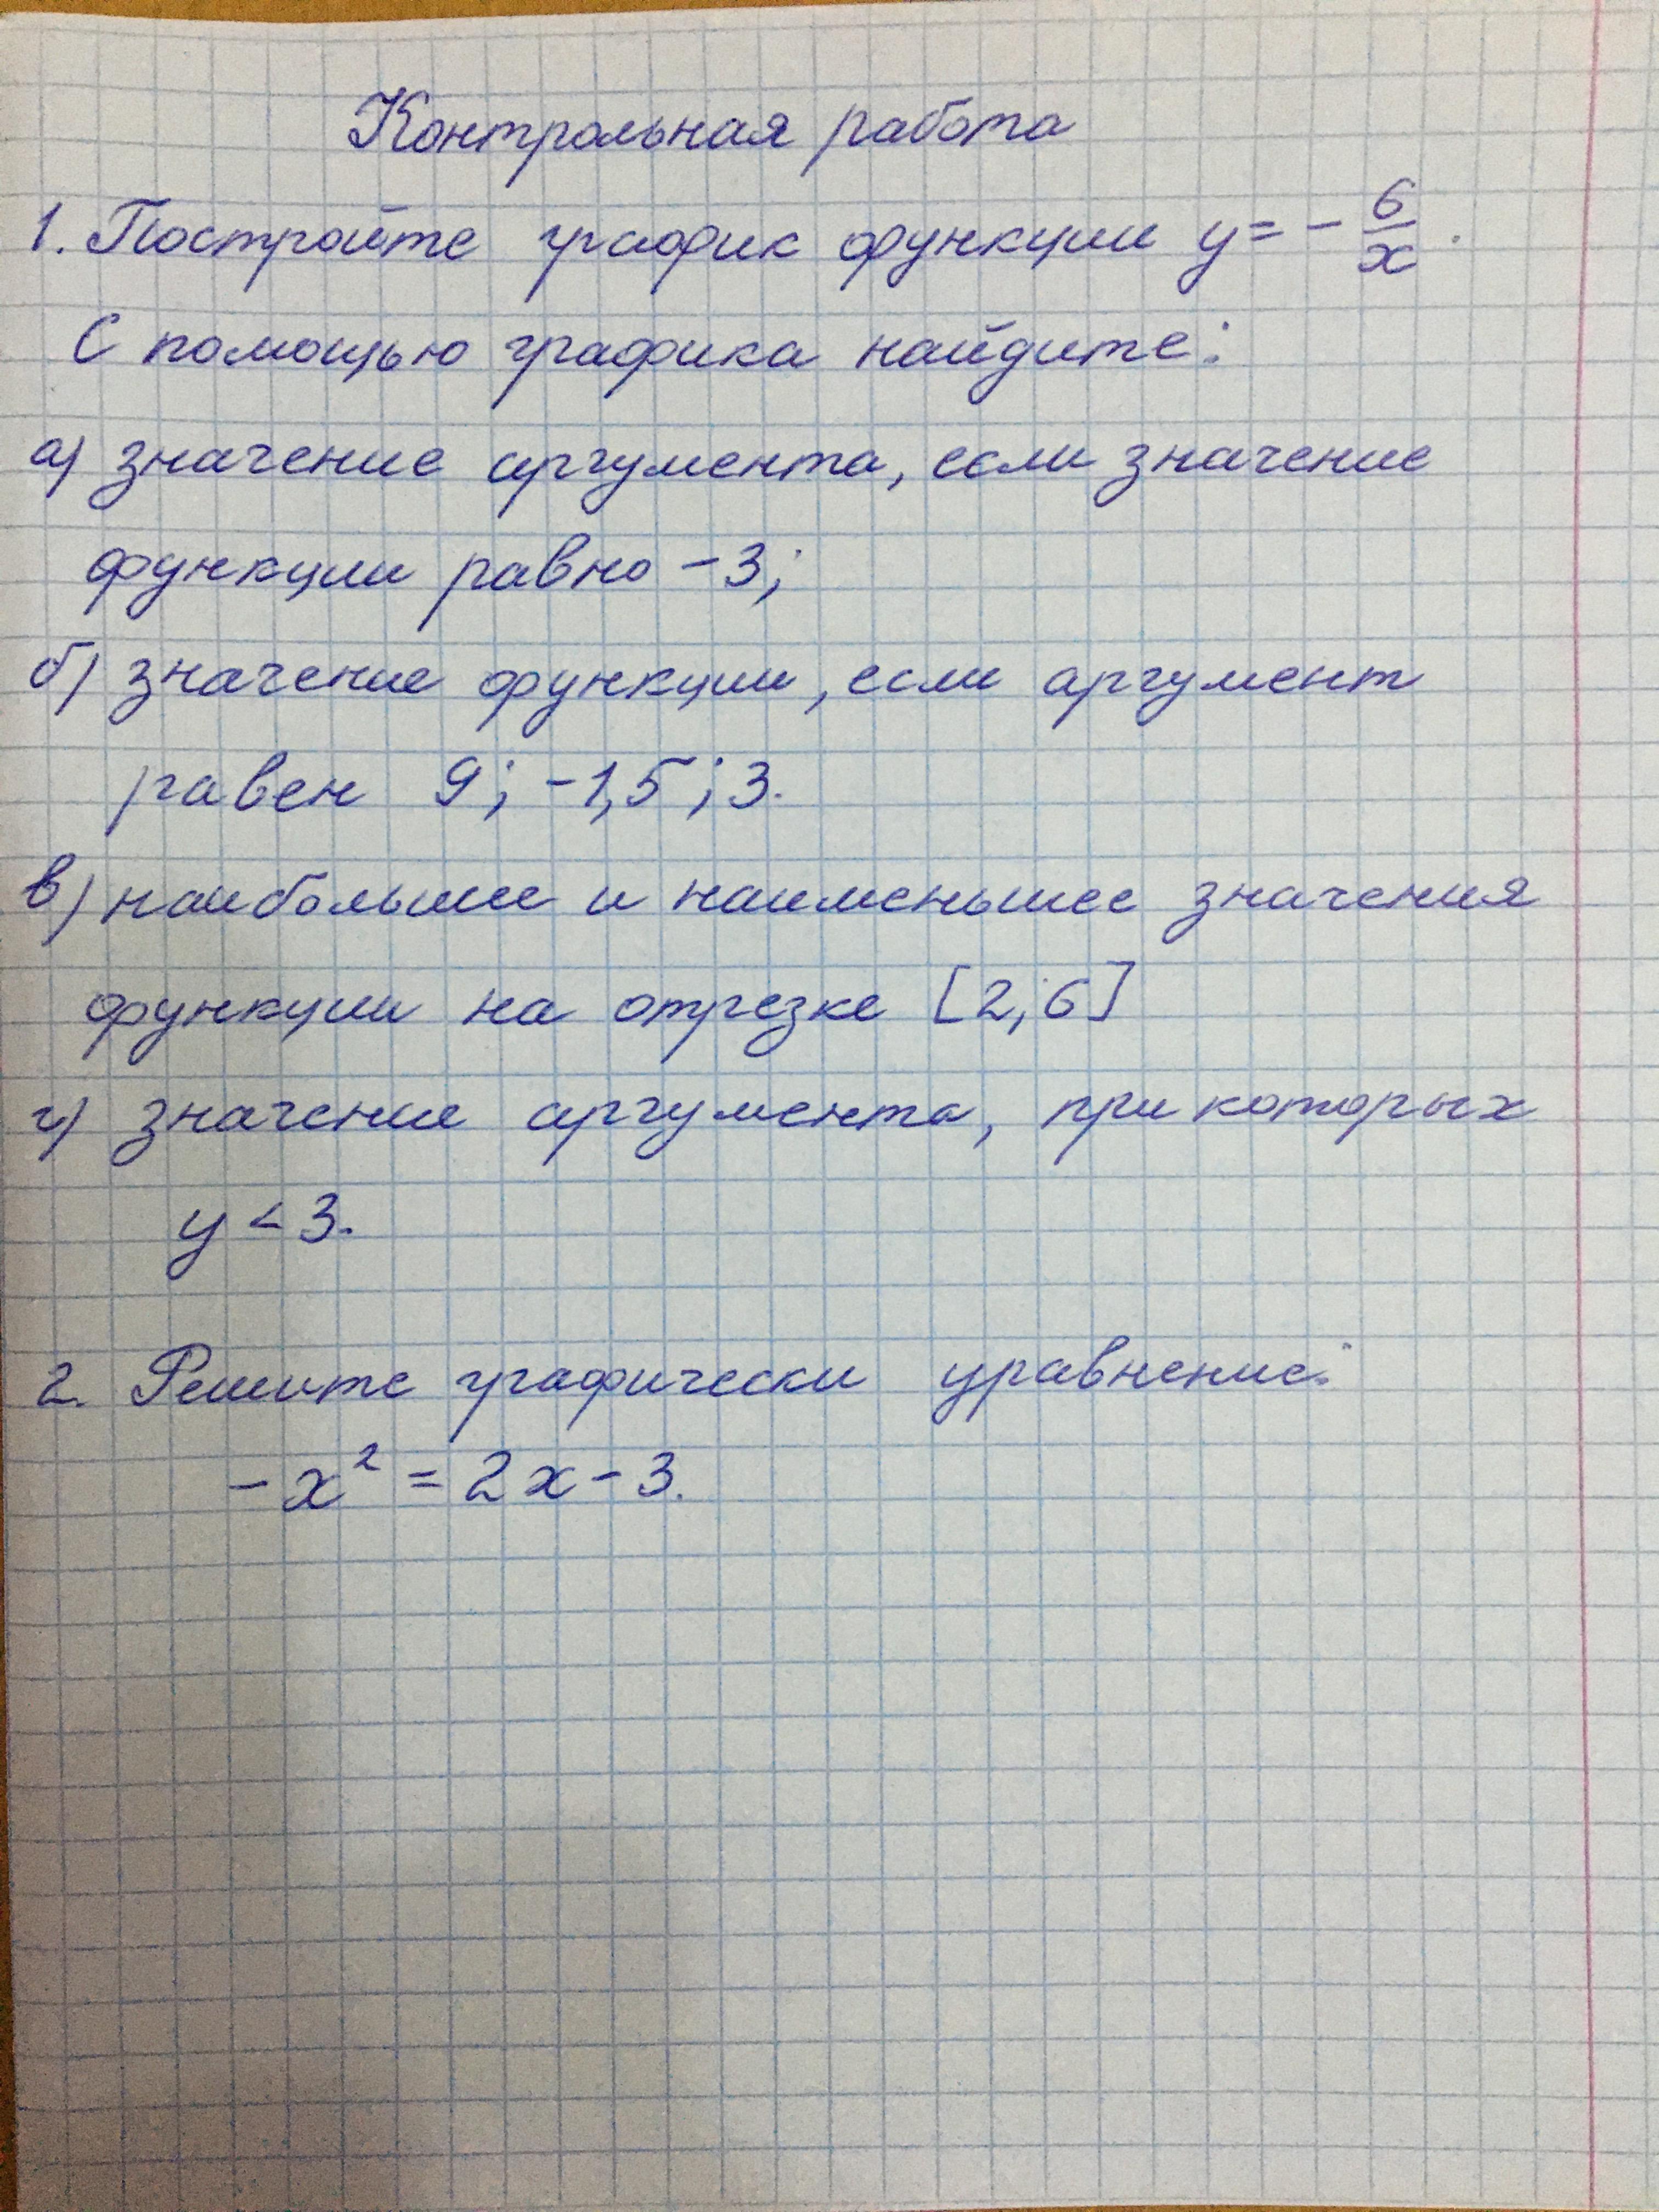 Контрольная работа
1. Постройте график функции y = - 6/x.
С помощью графика найдите:
а) значение аргумента, если значение
функции равно -3;
б) значение функции, если аргумент
равен 9; -1,5; 3.
в) наибольшее и наименьшее значения
функции на отрезке [2;6]
г) значение аргумента, при которых
y < 3.
2. Решите графически уравнение:
-x² = 2x - 3.